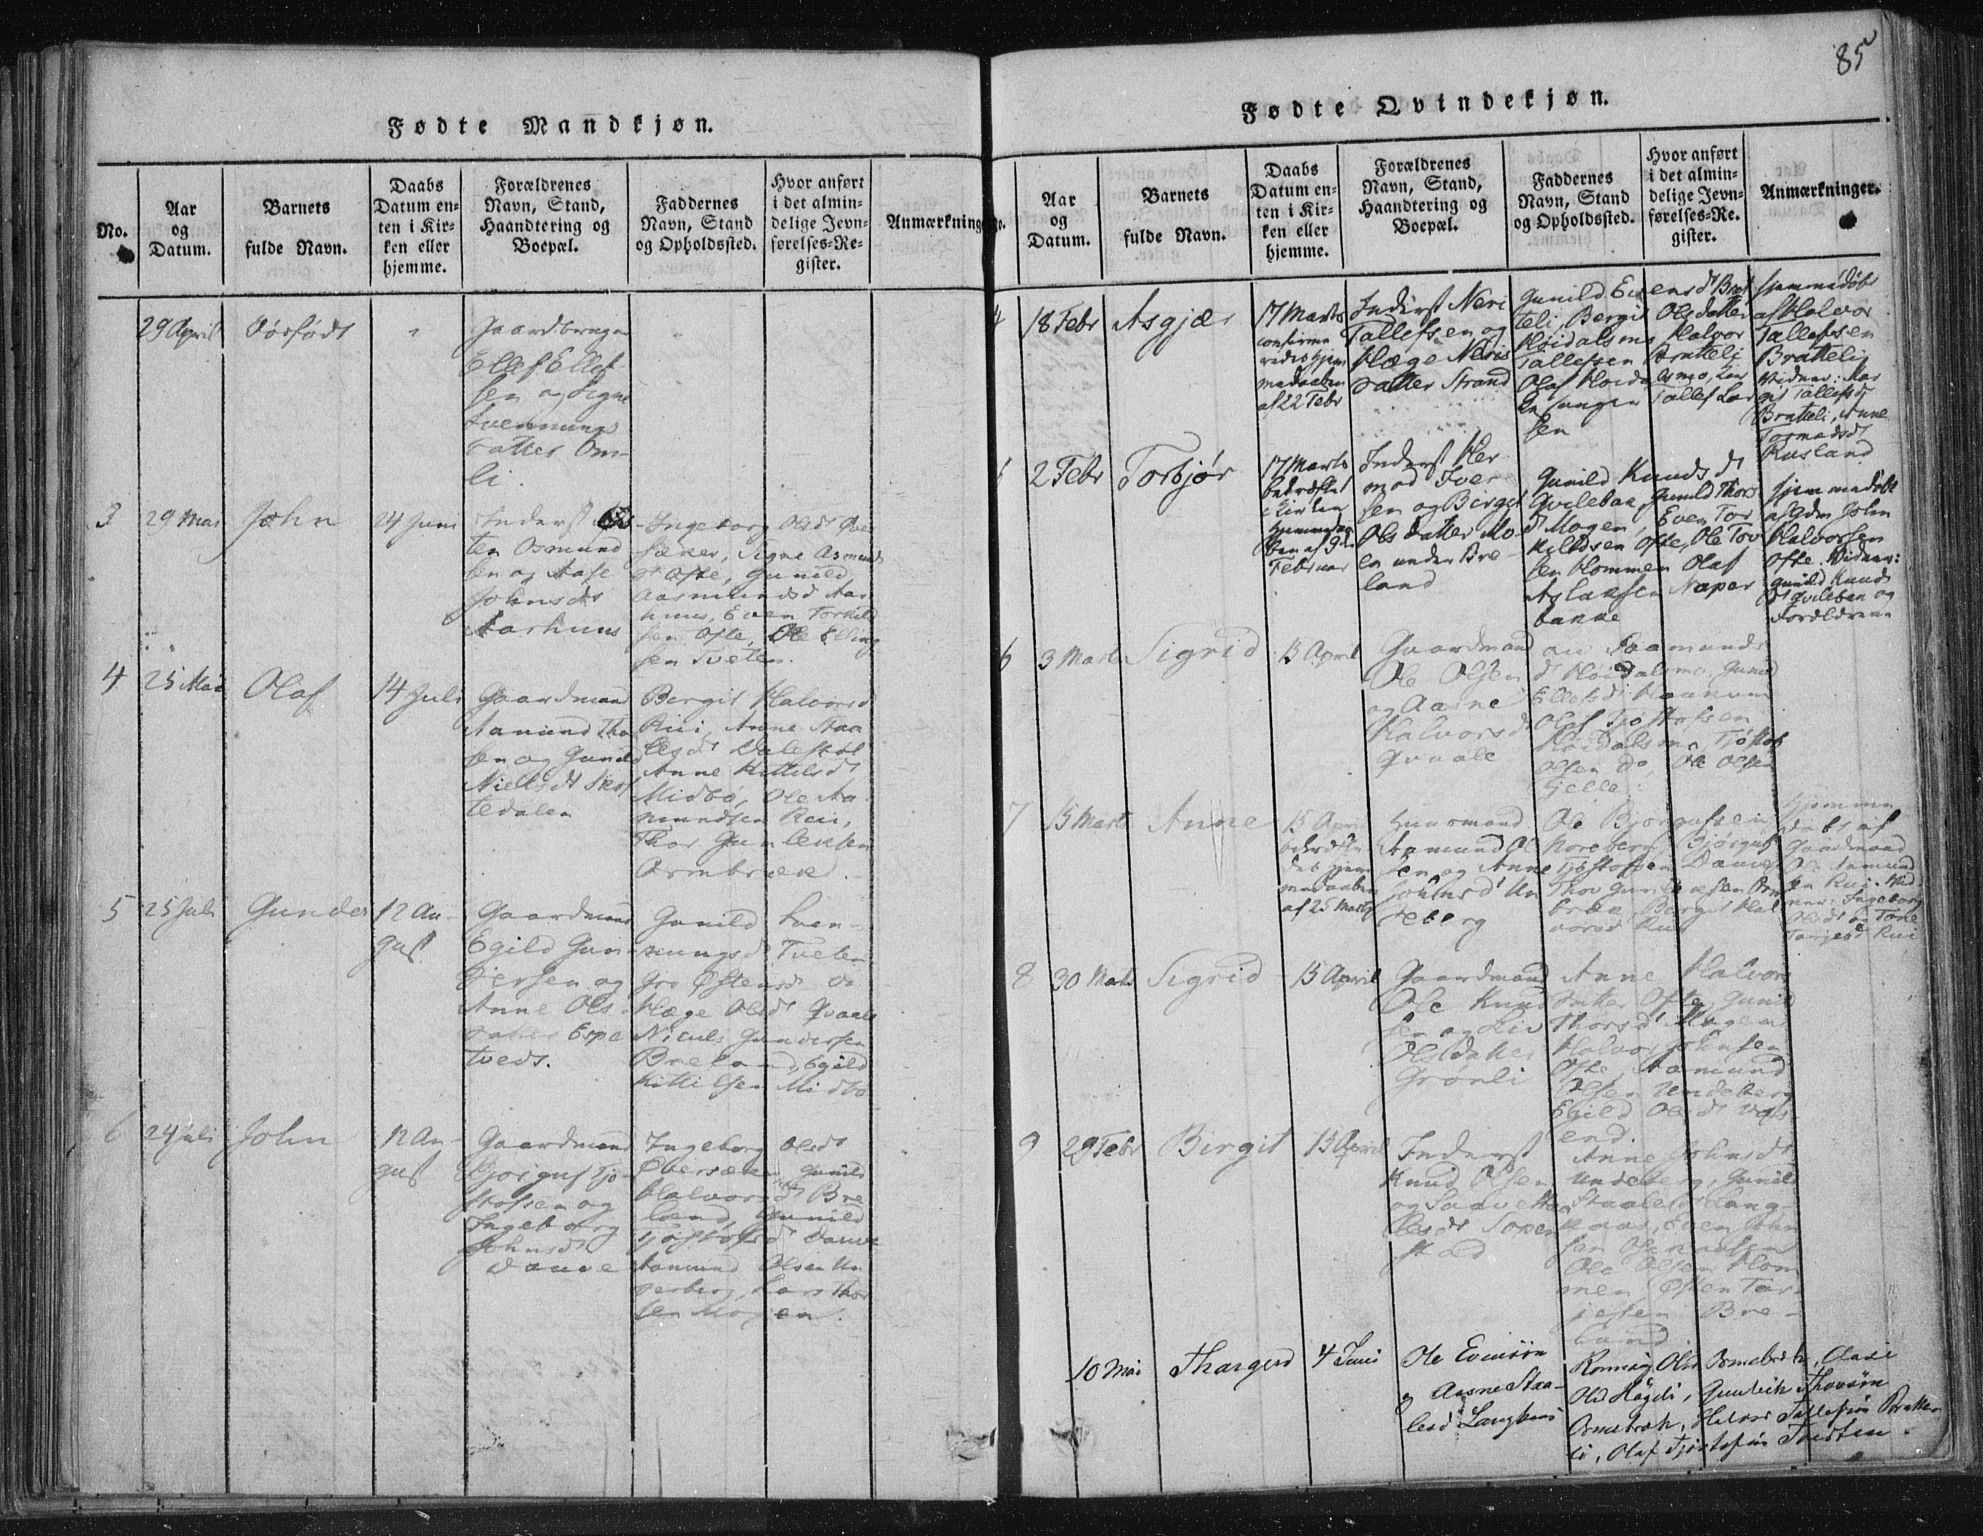 85
Fødte Mandkjøn.
No.
Aar
og
Datum.
Barnets
fulde Navn.
Daabs
Datum en-
ten i Kir-
ken eller
hjemme.
Forældrenes
Navn, Stand,
Haandtering og
Boepæl.
Faddernes
Navn, Stand
og Opholdssted.
Hvor anført
i det almin-
delige Jevn-
førelses-Re-
gister.
Anmærkninger.
29 April
Dødfødt
Gaardbruger
Ellef Ellef
sen og Signe
Svennungs
datter Om-
li.
3
29 Mai
John
24 Juni
Inderst
ten Osmund
sen og Aase
Johnsdr
Aarhuus
Ingeborg Olsdr
Signe Asmunds
dr Ofte, Gunild
Aasmundsd Aar
huus, Even Torkild
sen Ofte, Ole Elling
sen Tveten.
4
25 Mai
Olaf
14 Juli
Gaardmand
Aamund Tho
sen og Gunild
Nielsdt
tedalen
Bergit Halvorsd
Rui, Anne Staa
lesdt
Anne Kittilsdt
Midbø, Ole Aa
mundsen Rui,
Thor Gunleksen
Ormbrek.
5
25 Juli
Gunder
12 Au-
gust
Gaardmand
Egild Gun-
dersen og
Anne Ols-
datter Espe
tveds.
Gunild Sven-
nungsd Tveten
Gro Østensdt do
Hæge Olsdt Qvaale
Niculs Gundersen
Breland, Egild
Kittilsen Midbø
6
24 Juli
John
12 Au-
gust
Gaardmand
Bjørguf Tjø-
stofsen og
Ingeborg
Johnsdt
Dauve
Ingeborg Olsdt
Gunild
Halvorsdt Bre
land, Gunild
Tjøstofsdt Dauve
Aamund Olsen Un
deberg, Lars Thor
sen Mogen.
Fødte Qvindekjøn.
Aar
og
Datum.
Barnets
fulde Navn.
Daabs
Datum en-
ten i Kir-
ken eller
hjemme.
Forældrenes
Navn, Stand,
Haandtering og
Boepæl.
Faddernes
Navn, Stand
og Opholdssted.
Hvor anført
i det almin-
delige Jevn-
førelses-Re-
gister.
Anmærkninger.
4
18 Febr
Asgjær
17 Marts
confirme
redes hjem
medaaben
af 22 Febr
Inderst Neri
Tallefsen og
Hæge Neris
datter Strand
Gunild Evensdt Brat
teli, Bergit Olsdatter
Høidalsmo, Halvor
Tallefsen Bratteli
Olaf Høidalsmo,
Tallef Lar
sen
hjemmedøbt
af Halvor
Tallefsen
Bratteli
Vidner: Mar
git Tallefsdt
Bratteli, Anne
Tormodsdt
Rusland
2 Febr
Torbjør
17 Marts
bekræftet
i Kirken
hjemmedaa
ben af 9de
Februar
Inderst Her
mod Iver
sen og Birgit
Olsdatter Mo
en under Bre
land
Gunild Knudsdt
Qvileban, Gunild Thors
dt Mogen, Even Tor
kildsen Ofte, Ole Tov
sen Hommen Olaf
Aslaksen Naper
banke
hjemmedøbt
af Gdm John
Halvorsen
Ofte. Vidner:
Gunild Knuds
dt Qvileban og
Forældrene
6
3 Marts
Sigrid
15 April
Gaardmand
Ole Olsen
og Aasne
Halvorsdt
Qvaale
Aamunds
dt Høidalsmo, Gunild
Ellefsdt Haukum
Olaf Tjøstofsen
Høidalsmo, Tjøstof
Olsen do, Ole Olsen
Hjelle.
7
15 Marts
Anne
15 April
det hjem
medaaben
af 25 Marts
Huusmand
Aamund Ol
sen og Anne
Johnsdt Un
deberg
Ole Bjørgufsen
Noreberg, Bjørguf
Tjøstofsen Dauve
Thor Gunleksen Orm
brek, Bergit Hal
vorsd Rui
hjemme
døbt af
Gaardmand
Ole Aamund
sen Rui. Vid
ner: Ingeborg
Olsdt og Tone
Torjesd Rui
8
30 Marts
Sigrid
15 April
Gaardmand
Ole Knud
sen og Liv
Olsdatter
Grønli
Anne Halvors
datter Ofte, Gunild
Thorsdt Mogen
Halvor Johnsen
Ofte, Aamund
Olsen Undeberg
Egild Olsdt Vaas-
end.
9
29 Febr
Birgit
15 April
Inderst
Knud Olsen
og Saave Staa
lesdt Sopen
stad
Anne Johnsdt
Undeberg, Gunild
Staalesdt Lang-
kaas, Even John
sen
Ole Olsen Hom
men, Østen Tor-
jesen Bre-
land
10 Mai
Thorgerd
4 Juni
Ole Evensøn
& Aasne Staa-
lesd Langkaas
Ronnaug Olsd Ormebrek, Aase
Olsd Høgeli, Gunleik Thorsøn
Ormebrek, Halvor Tallefsøn Bratte-
li, Olaf Tjøstofsøn Tveten.